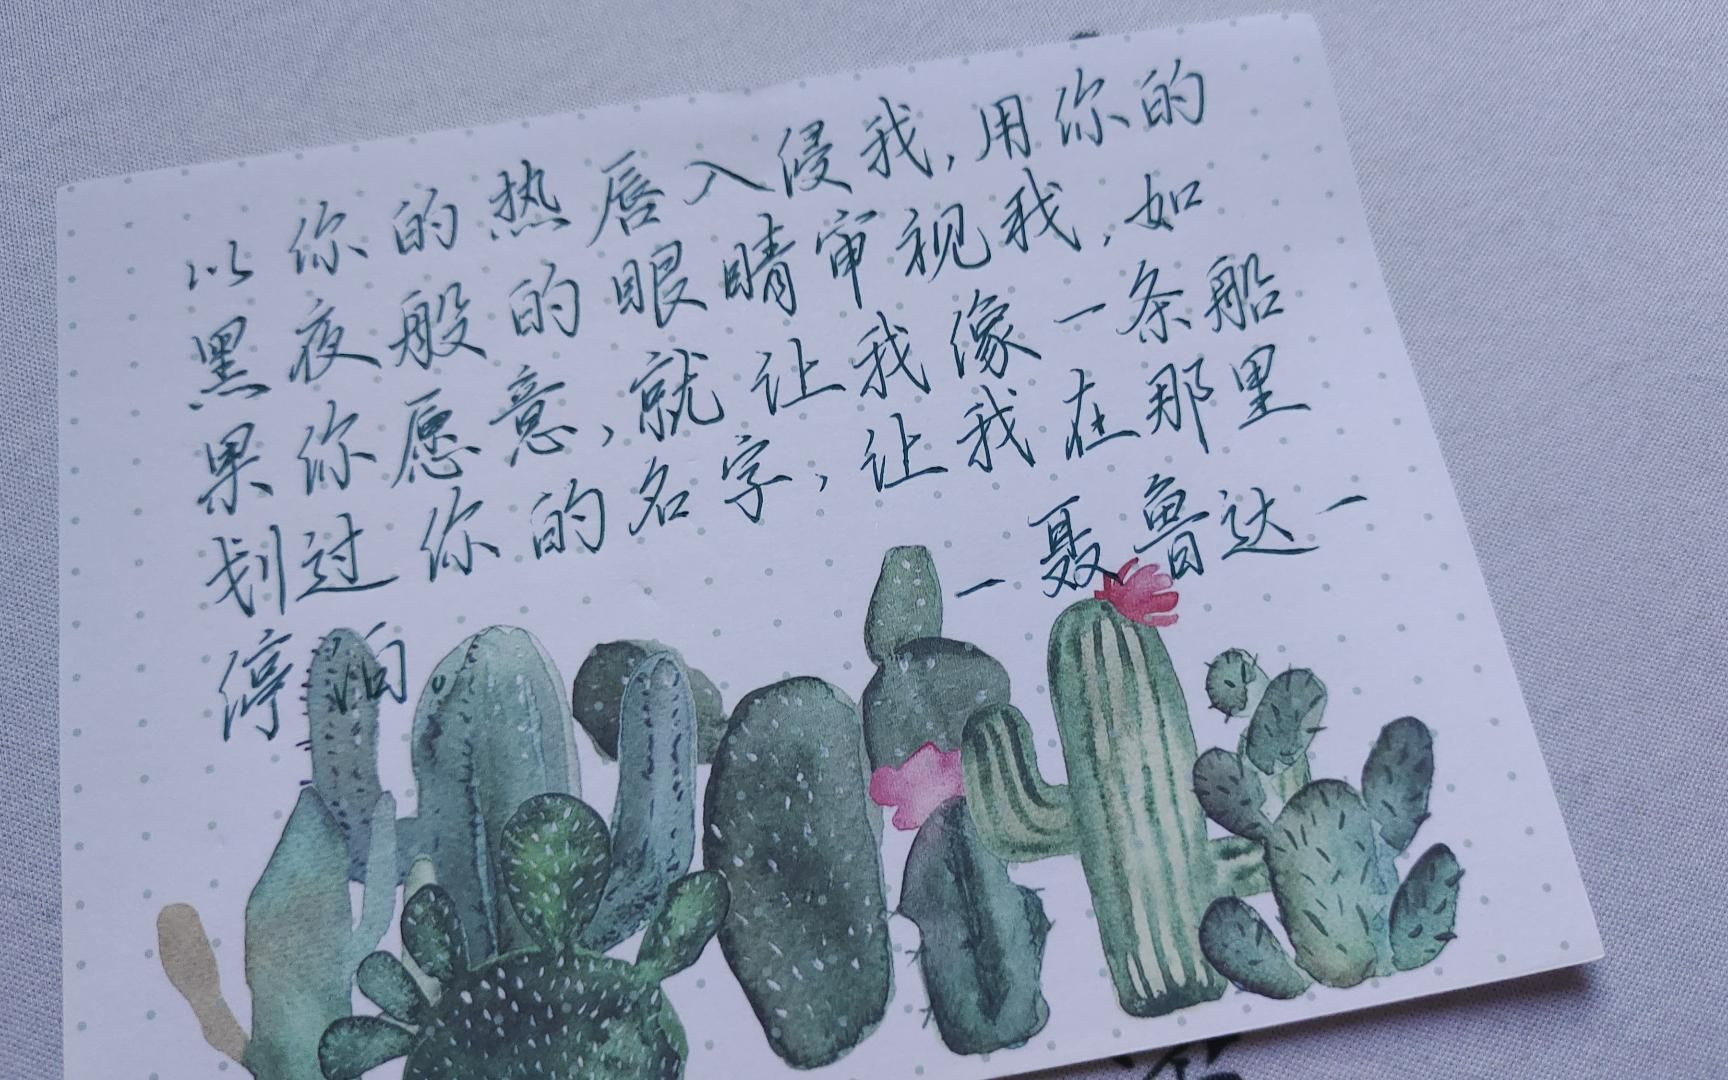 以你的热唇入侵我,用你的
黑夜般的眼睛审视我,如
果你愿意,就让我像一条船
划过你的名字,让我在那里
停泊。
-聂鲁达-